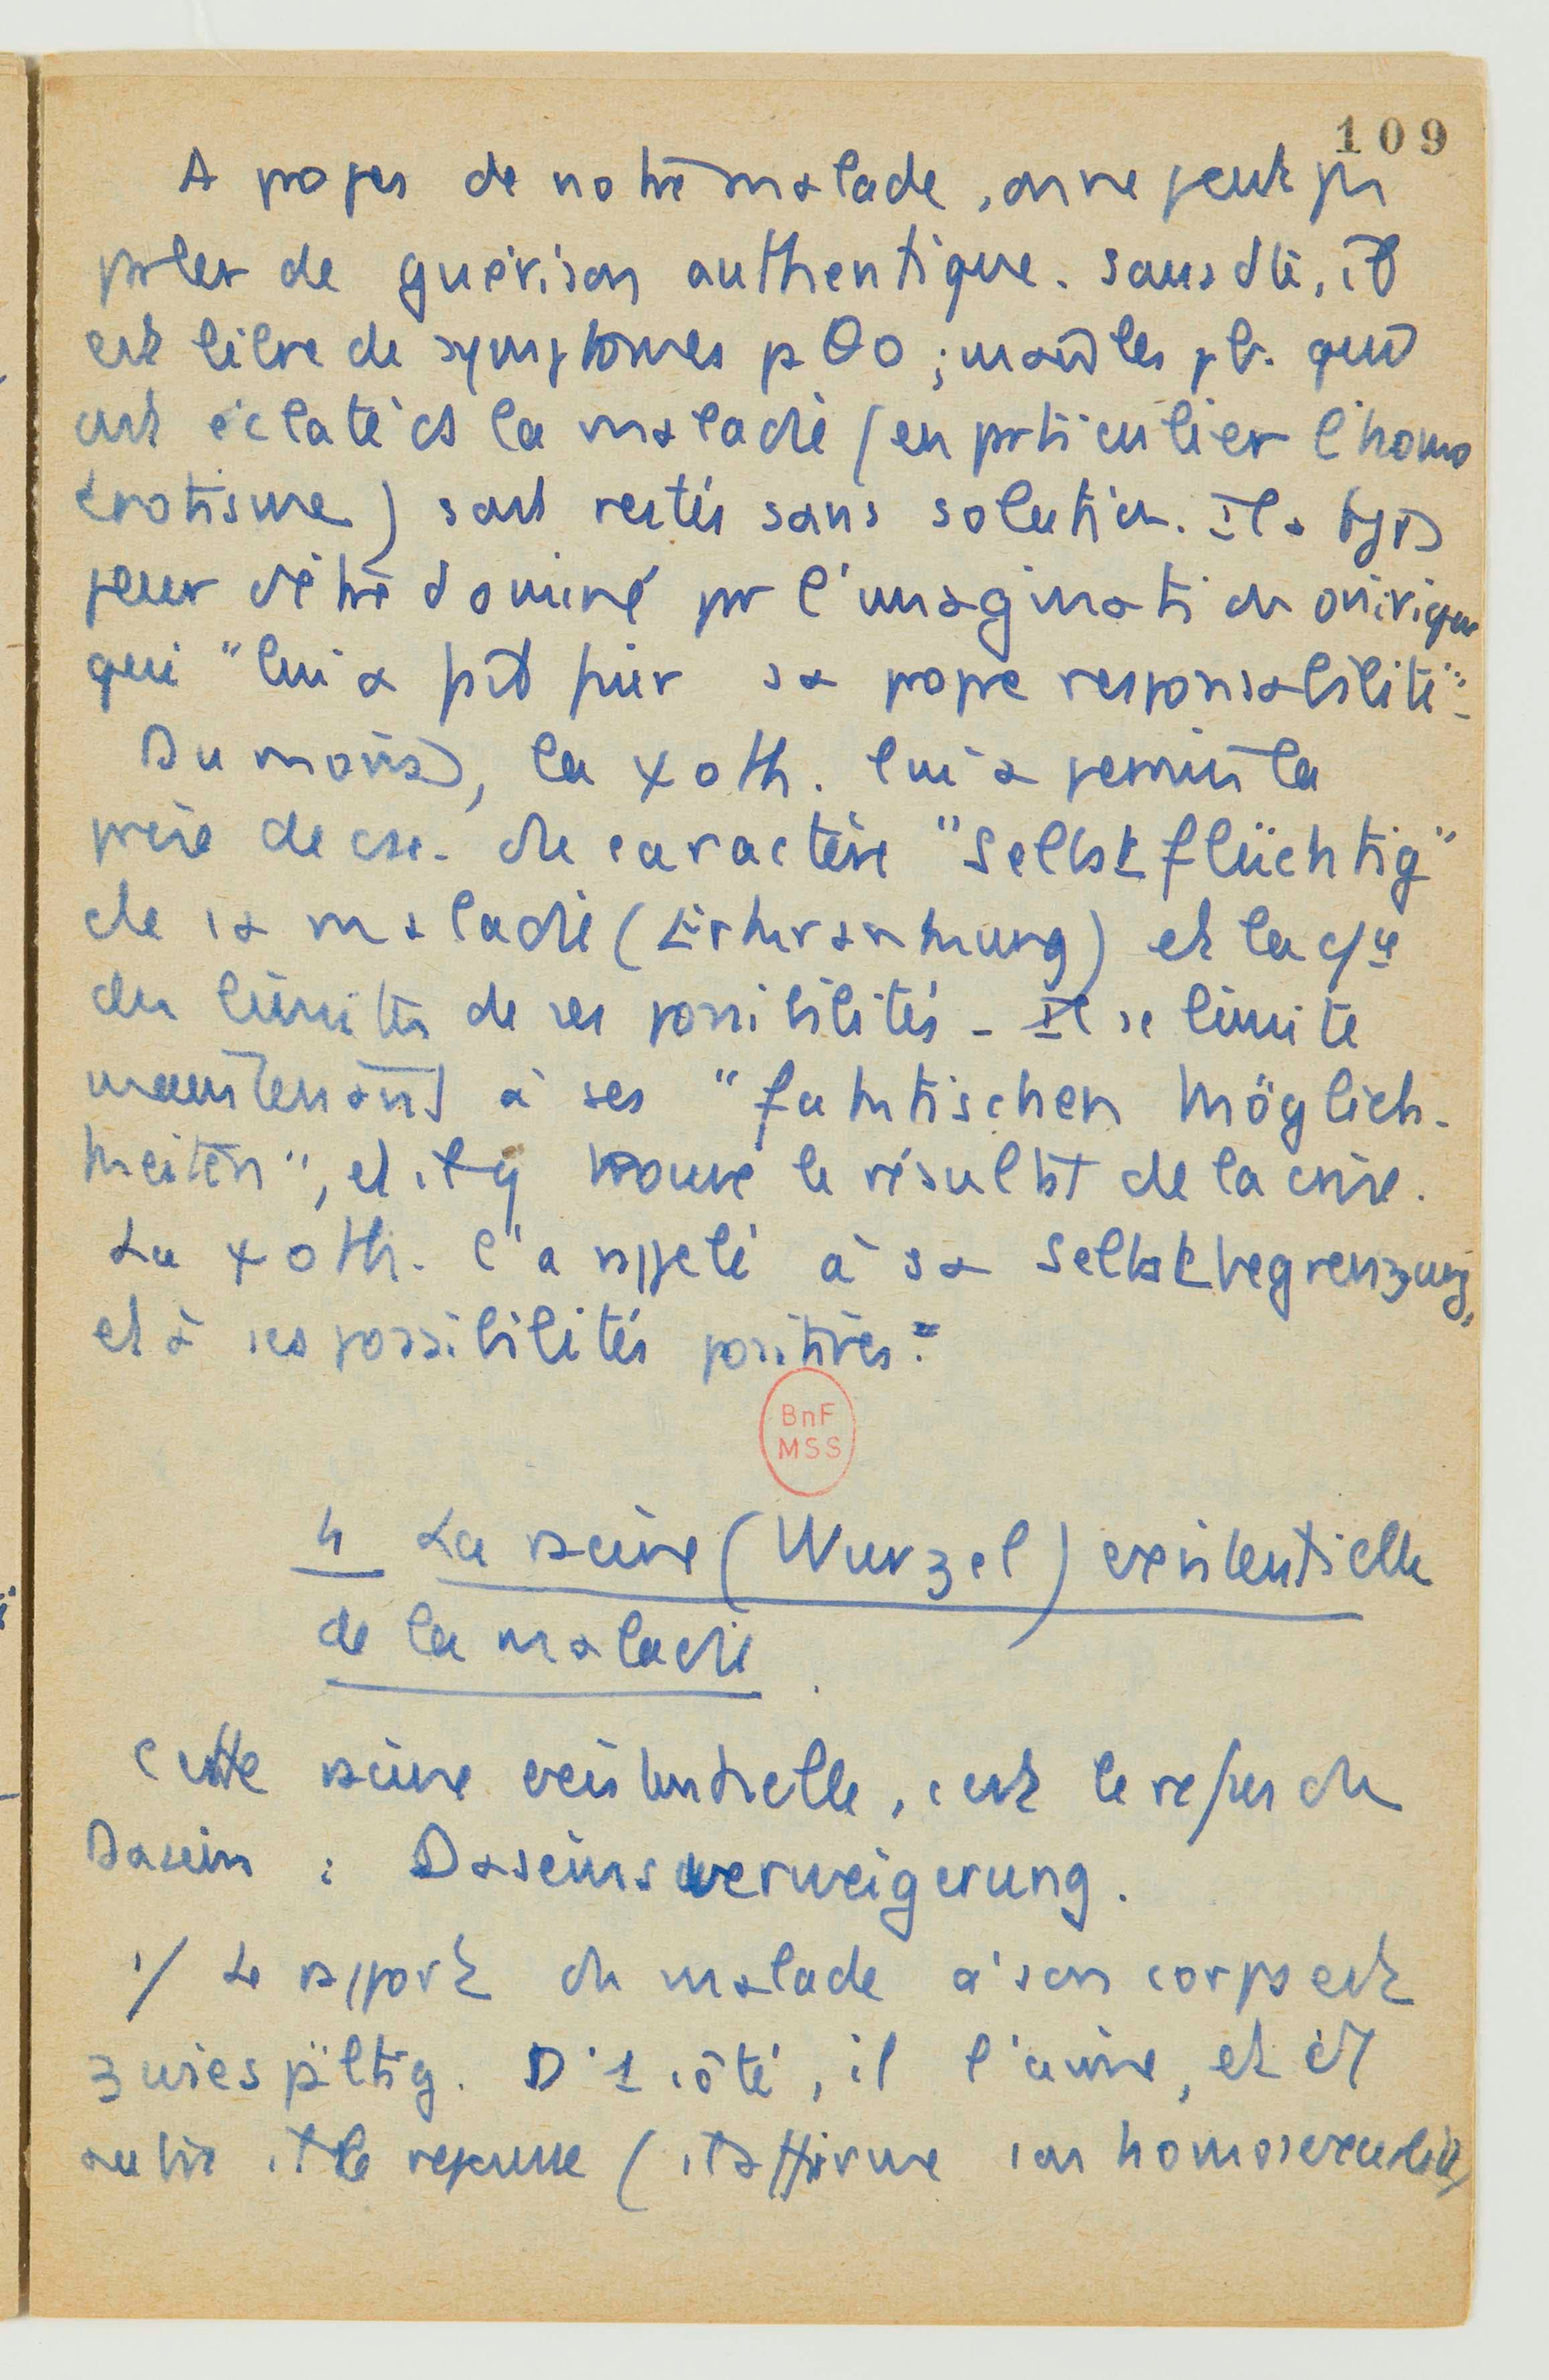 109
A propos de notre malade, on ne peut pas
parler de guérison authentique. Sans dte, il
est libre de symptômes pθο ; mais les pb. qui
ont éclaté ds la maladie (en particulier l'homo
érotisme) sont restés sans solution. Il a tjrs
peur d'être dominé par l'imagination onirique
qui "lui a fait fuir sa propre responsabilité".
Du moins, la ψoth. lui a permis la
prise de csc. du caractère "Selbstflüchtig"
de sa maladie (Erkrankung) et la
des limites de ses possibilités - Il se limite
maintenant à ses "faktischen Möglich-
keiten", et il y trouve le résultat de la crise.
La ψoth. l'a rappelé à sa Selbstbegrenzung,
et à ses possibilités positives.
BnF
MSS
4 La racine (Wurzel) existentielle
de la maladie.
Cette racine existentielle, c'est le refus du
Dasein : Daseinsverweigerung.
1/ Le rapport du malade à son corps est
zwiespältig. D'1 côté, il l'aime, et d'1
autre il le repousse (il affirme son homosexualité)